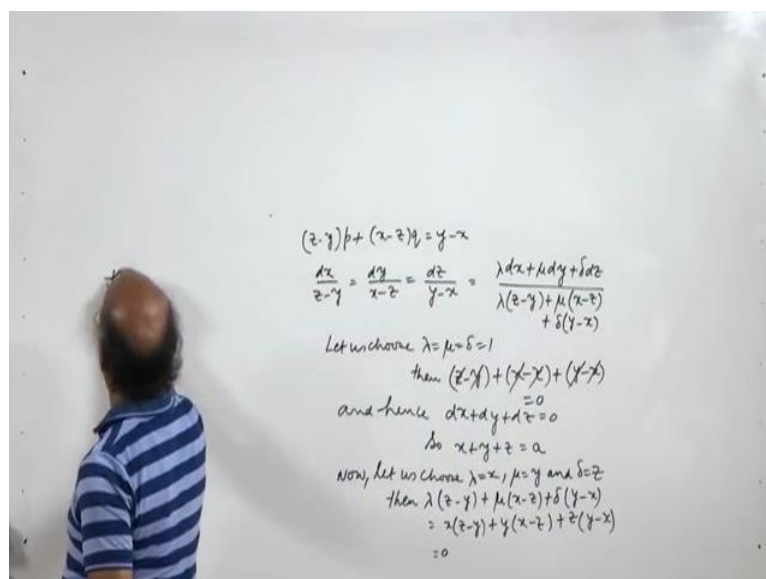 (z-y)p+(x-z)q=y-x
dx/(z-y) = dy/(x-z) = dz/(y-x) = (λdx+μdy+δdz)/(λ(z-y)+μ(x-z)+δ(y-x))
Let us choose λ=μ=δ=1
then (z-y)+(x-z)+(y-x)
=0
and hence dx+dy+dz=0
So x+y+z=a
Now, let us choose λ=x, μ=y and δ=z
then λ(z-y)+μ(x-z)+δ(y-x)
= x(z-y)+y(x-z)+z(y-x)
=0